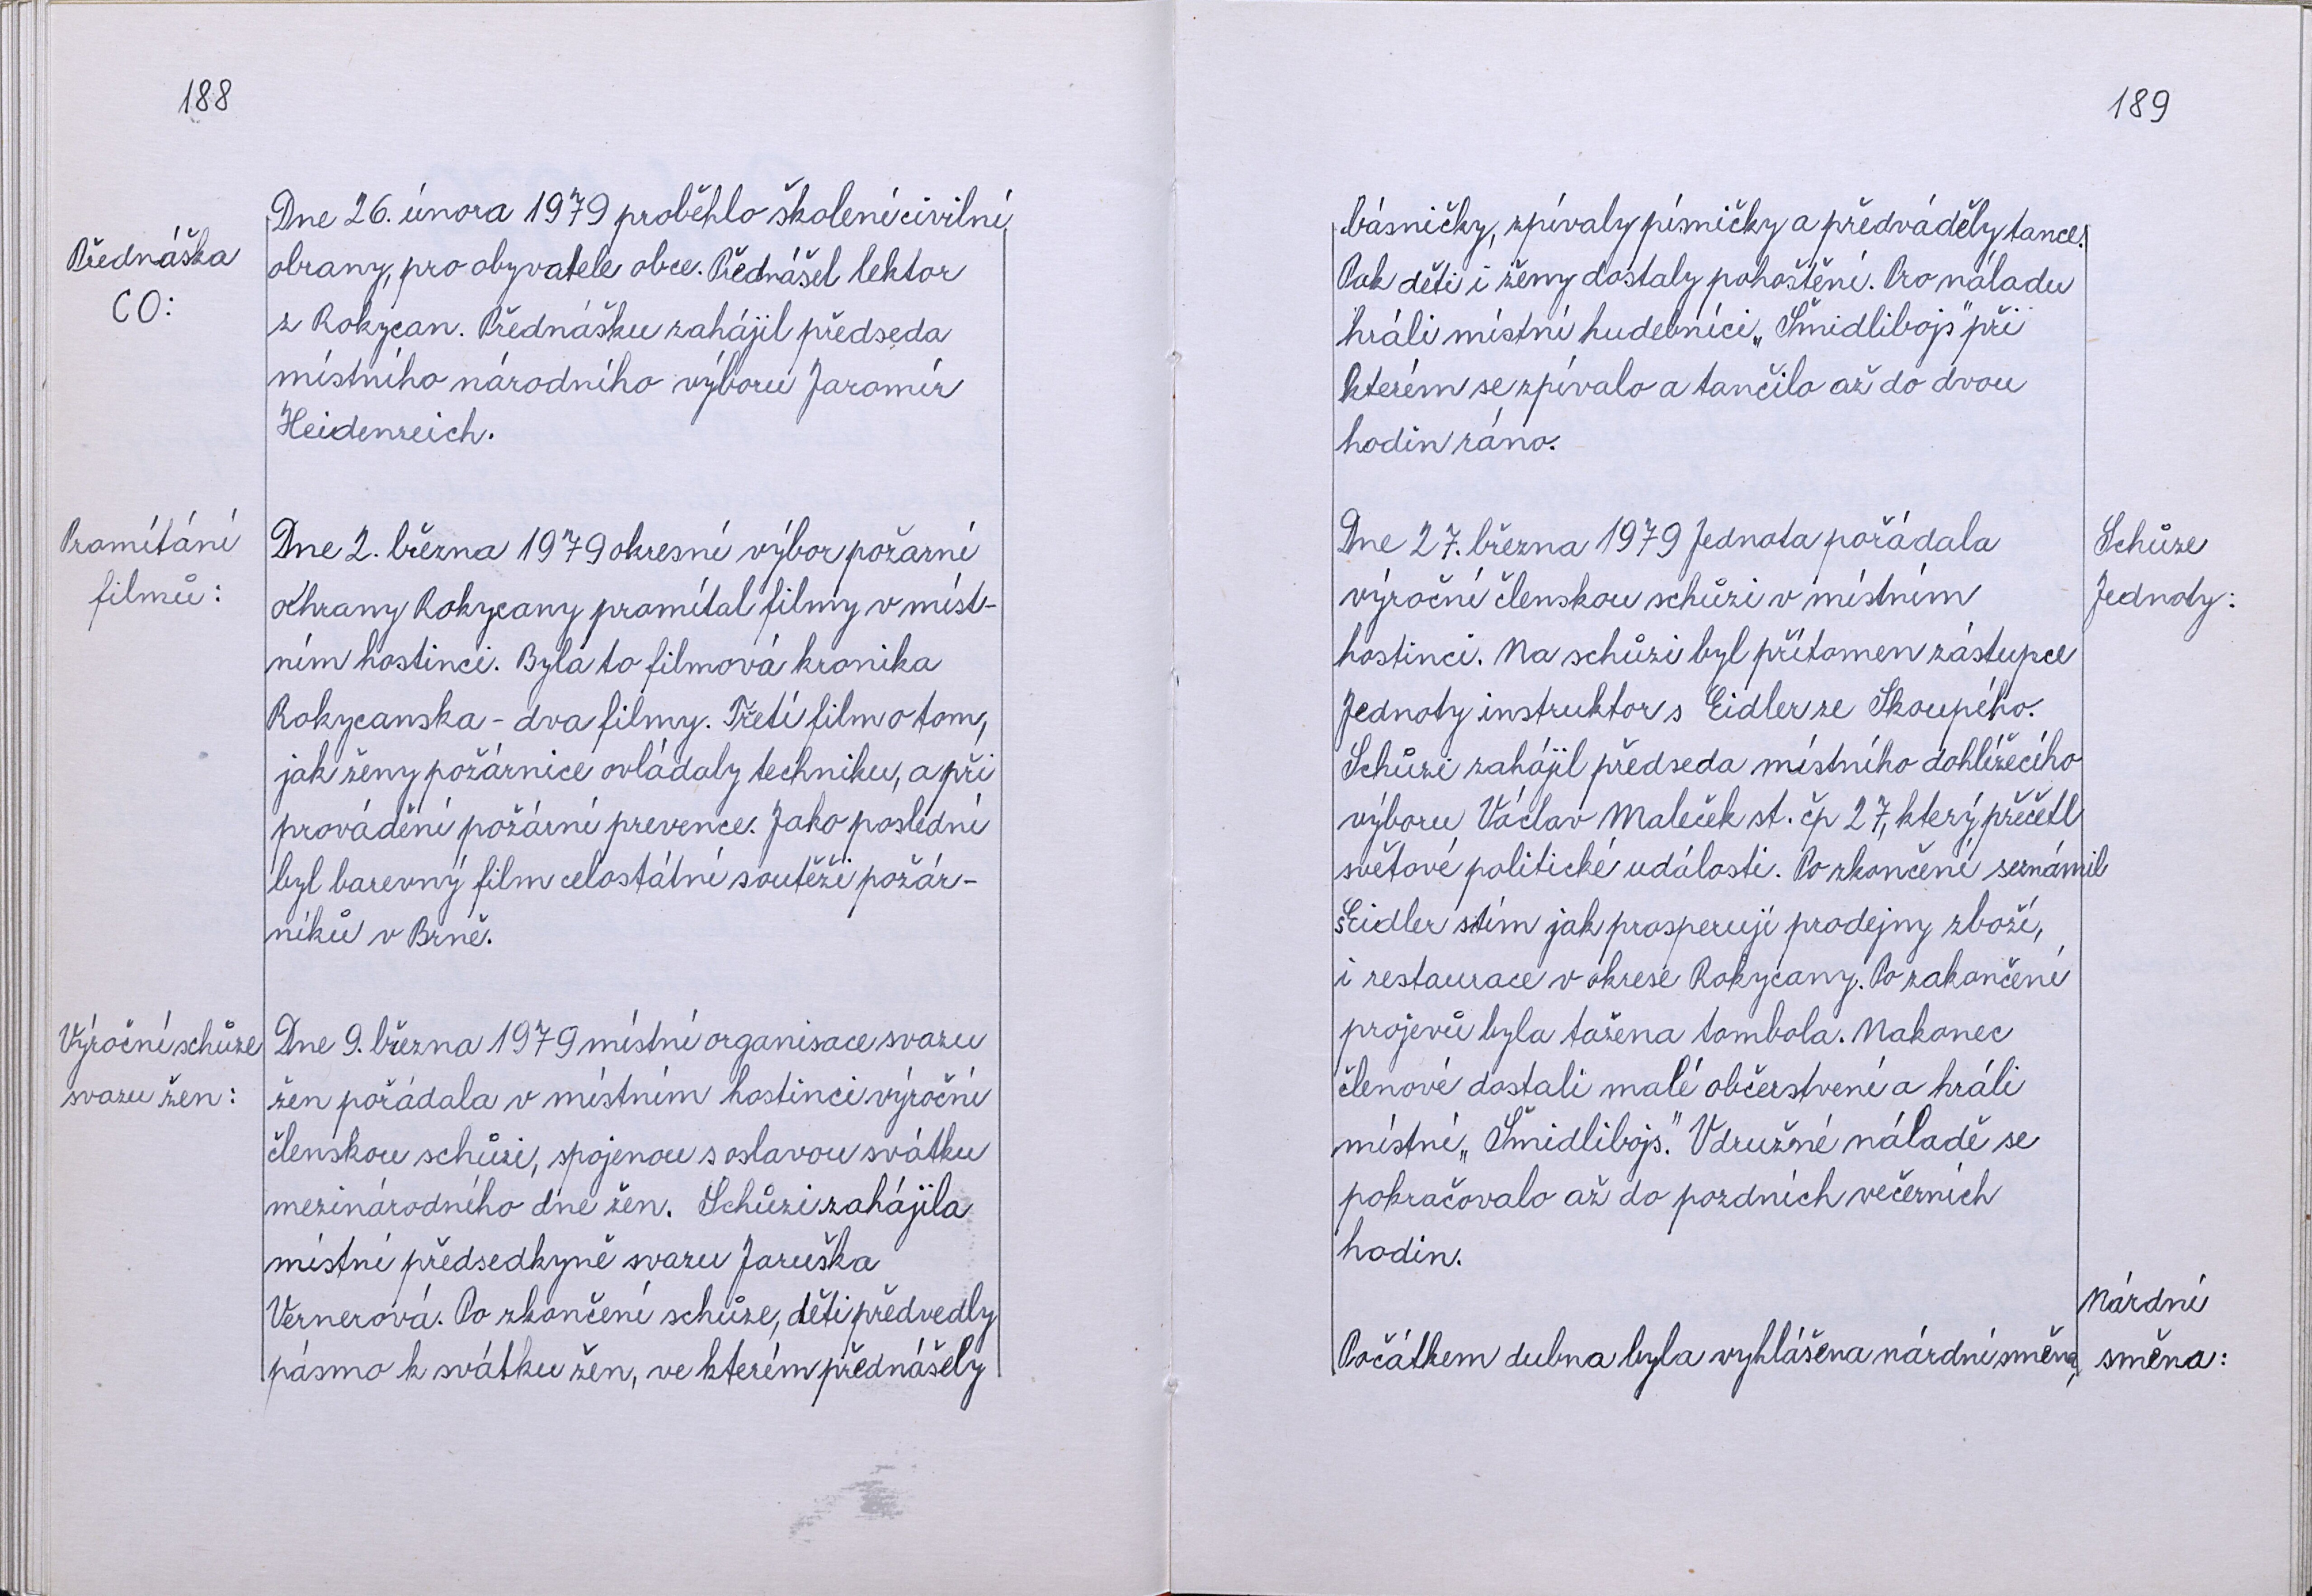 188
Přednáška
CO:
Dne 26. února 1979 proběhlo školení civilní
obrany, pro obyvatele obce. Přednášel lektor
z Rokycan. Přednášku zahájil předseda
místního národního výboru Jaromír
Heidenreich.
Promítání
filmů:
Dne 2. března 1979 okresní výbor požární
ochrany Rokycany promítal filmy v míst-
ním hostinci. Byla to filmová kronika
Rokycanska - dva filmy. Třetí film o tom,
jak ženy požárnice ovládaly techniku, a při
provádění požární prevence. Jako poslední
byl barevný film celostátní soutěži požár-
níků v Brně.
Výroční schůze
svazu žen:
Dne 9. března 1979 místní organisace svazu
žen pořádala v místním hostinci výroční
členskou schůzi, spojenou s oslavou svátku
mezinárodního dne žen. Schůzi zahájila
místní předsedkyně svazu Jaruška
Vernerová. Po zkončení schůze, děti předvedly
pásmo k svátku žen, ve kterém přednášely
189
básničky, zpívaly písničky a předváděly tance.
Pak děti i ženy dostaly pohoštění. Pro náladu
hráli místní hudebníci „Šmidlibojs" při
kterém se zpívalo a tančilo až do dvou
hodin ráno.
Schůze
Jednoty:
Dne 27. března 1979 Jednota pořádala
výroční členskou schůzi v místním
hostinci. Na schůzi byl přítomen zástupce
Jednoty instruktor s Eidler ze Skoupého.
Schůzi zahájil předseda místního dohlížecího
výboru Václav Maleček st. čp 27, který přečetl
světové politické události. Po zkončení seznámil
s Eidler s tím jak prosperují prodejny zboží,
i restaurace v okrese Rokycany. Po zakončení
projevů byla tažena tombola. Nakonec
členové dostali malé občerstvení a hráli
místní „Šmidlibojs." V družné náladě se
pokračovalo až do pozdních večerních
hodin.
Nárdní
směna:
Počátkem dubna byla vyhlášena nárdní směna,